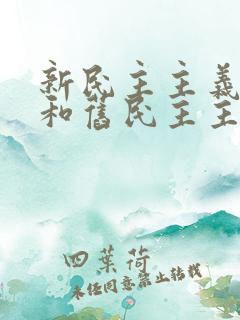 新民主主義
和舊民主主
四葉荷
未经同意禁止转载